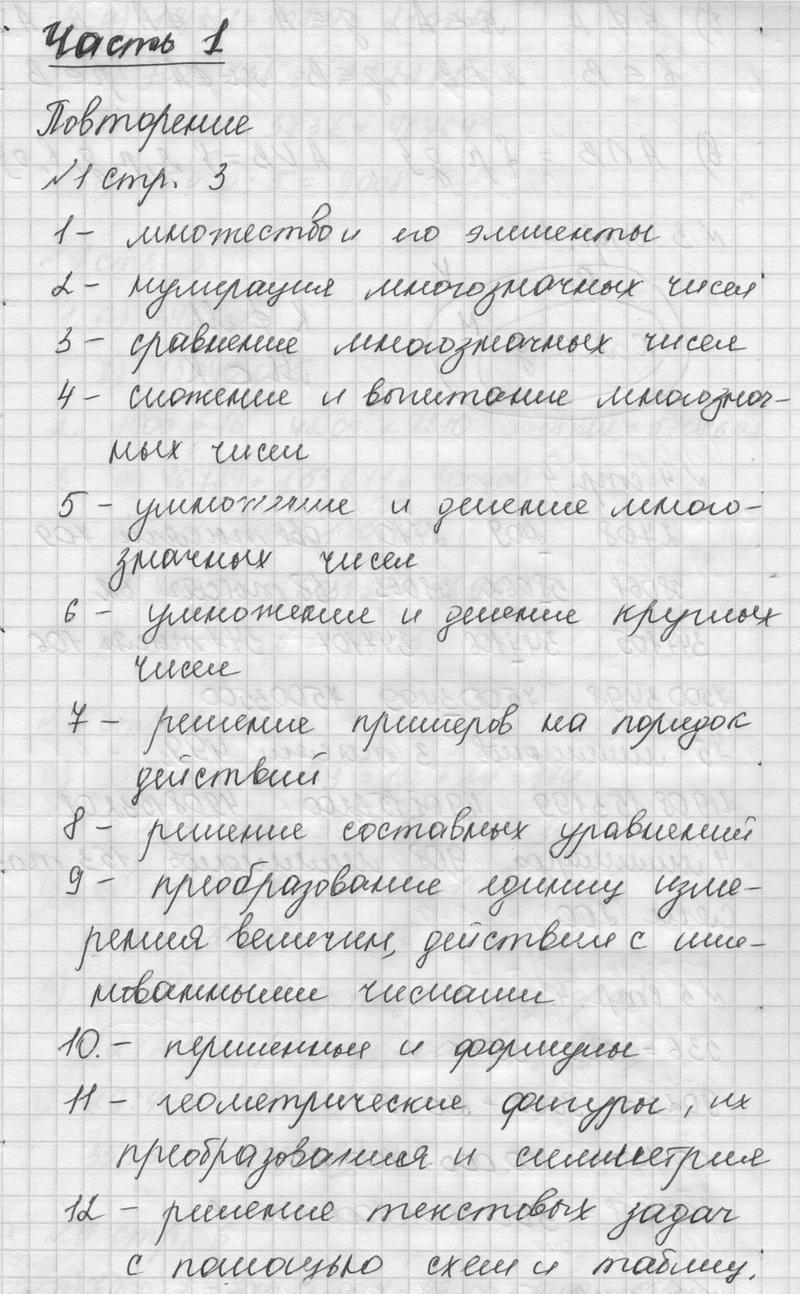 Часть 1
Повторение
№1 стр. 3
1 – множество и его элементы
2 – нумерация многозначных чисел
3 – сравнение многозначных чисел
4 – сложение и вычитание многознач-
ных чисел
5 – умножение и деление много-
значных чисел
6 – умножение и деление круглых
чисел
7 – решение примеров на порядок
действий
8 – решение составных уравнений
9 – преобразование единиц изме-
рения величин, действия с име-
нованными числами
10. – переменные и формулы
11 – геометрические фигуры, их
преобразования и симметрия
12 – решение текстовых задач
с помощью схем и таблиц.